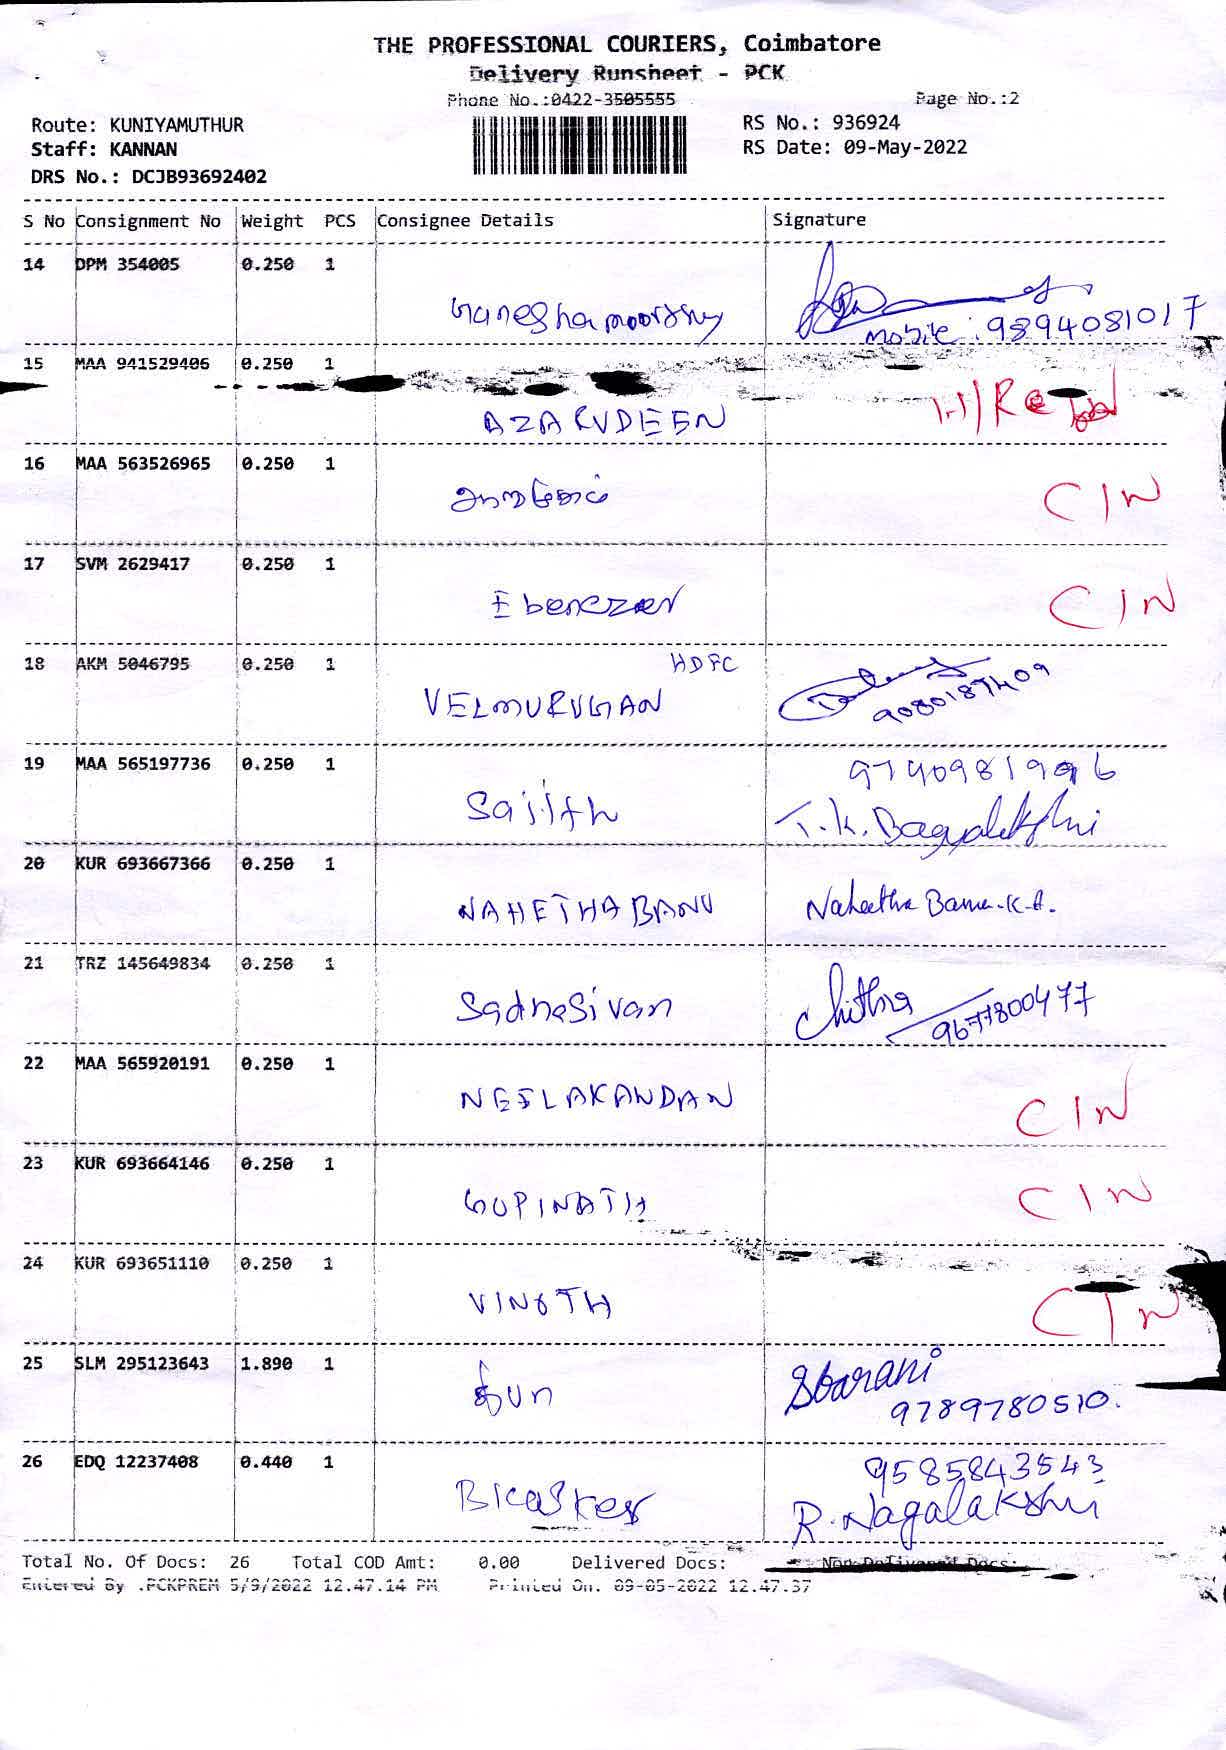 THE PROFESSIONAL COURIERS, Coimbatore
Delivery Runsheet - PCK
Phone No.:0422-3505555 Page No.:2
Route: KUNIYAMUTHUR RS No.: 936924
Staff: KANNAN RS Date: 09-May-2022
DRS No.: DCJB93692402
S No Consignment No Weight PCS Consignee Details Signature
14 DPM 354005 0.250 1
Ganeshamoorthy
mobile: 9894081017
15 MAA 941529406 0.250 1
AZARUDEEN
16 MAA 563526965 0.250 1
C/N
17 SVM 2629417 0.250 1
Ebenezer C/N
18 AKM 5046795 0.250 1 HDFC
VELMURUGAN 9080187409
19 MAA 565197736 0.250 1 9740981996
Sajith T.K. Bagyalakshmi
20 KUR 693667366 0.250 1
NAHETHA BANU Naheetha Banu.K.A.
21 TRZ 145649834 0.250 1
Sadhasivan Chithra 9677800477
22 MAA 565920191 0.250 1
NEELAKANDAN C/N
23 KUR 693664146 0.250 1
GOPINATH C/N
24 KUR 693651110 0.250 1
VINOTH C/N
25 SLM 295123643 1.890 1
தீபா Sbarani
9789780510.
26 EDQ 12237408 0.440 1 9585843543
R. Nagalakshmi
Total No. Of Docs: 26 Total COD Amt: 0.00 Delivered Docs: Non Delivered Docs:
Entered By .PCKPREM 5/9/2022 12.47.14 PM Printed On. 09-05-2022 12.47.37